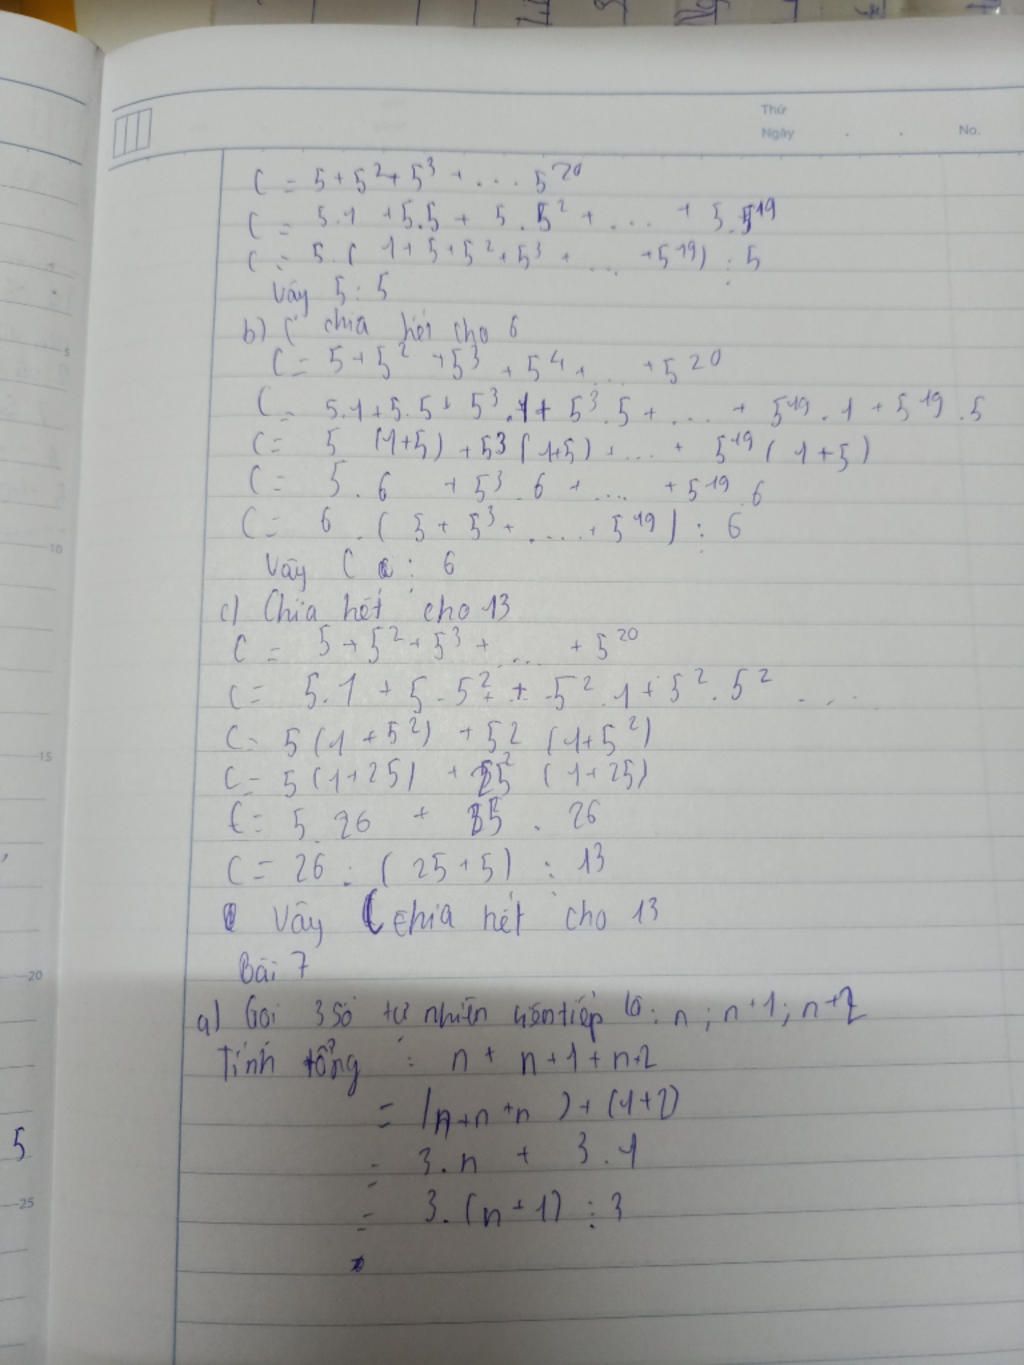 Thứ
Ngày . . No.
C = 5 + 5² + 5³ + .... 5²⁰
C = 5.1 + 5.5 + 5.5² + .... + 5.5¹⁹
C = 5.( 1 + 5 + 5² + 5³ + ... + 5¹⁹) ⋮ 5
Vậy 5 ⋮ 5
b) C chia hết cho 6
C = 5 + 5² + 5³ + 5⁴ + ... + 5²⁰
C = 5.1 + 5.5 + 5³.1 + 5³.5 + .... + 5¹⁹.1 + 5¹⁹.5
C = 5 (1+5) + 5³ (1+5) + ... + 5¹⁹ ( 1+5)
C = 5.6 + 5³.6 + .... + 5¹⁹.6
C = 6 . ( 5 + 5³ + ..... + 5¹⁹) ⋮ 6
Vậy C ⋮ 6
c) Chia hết cho 13
C = 5 + 5² + 5³ + ... + 5²⁰
C = 5.1 + 5.5² + ... 5².1 + 5².5² ....
C = 5 (1 + 5²) + 52 (1+5²)
C = 5 (1+25) + 25² (1+25)
C = 5.26 + 25 . 26
C = 26 . ( 25+5) ⋮ 13
Vậy C chia hết cho 13
Bài 7
a) Gọi 3 số tự nhiên liên tiếp là: n ; n+1 ; n+2
Tính tổng : n + n+1 + n+2
= (n+n+n) + (1+2)
= 3.n + 3.1
= 3.(n+1) ⋮ 3
5
10
15
20
25
5